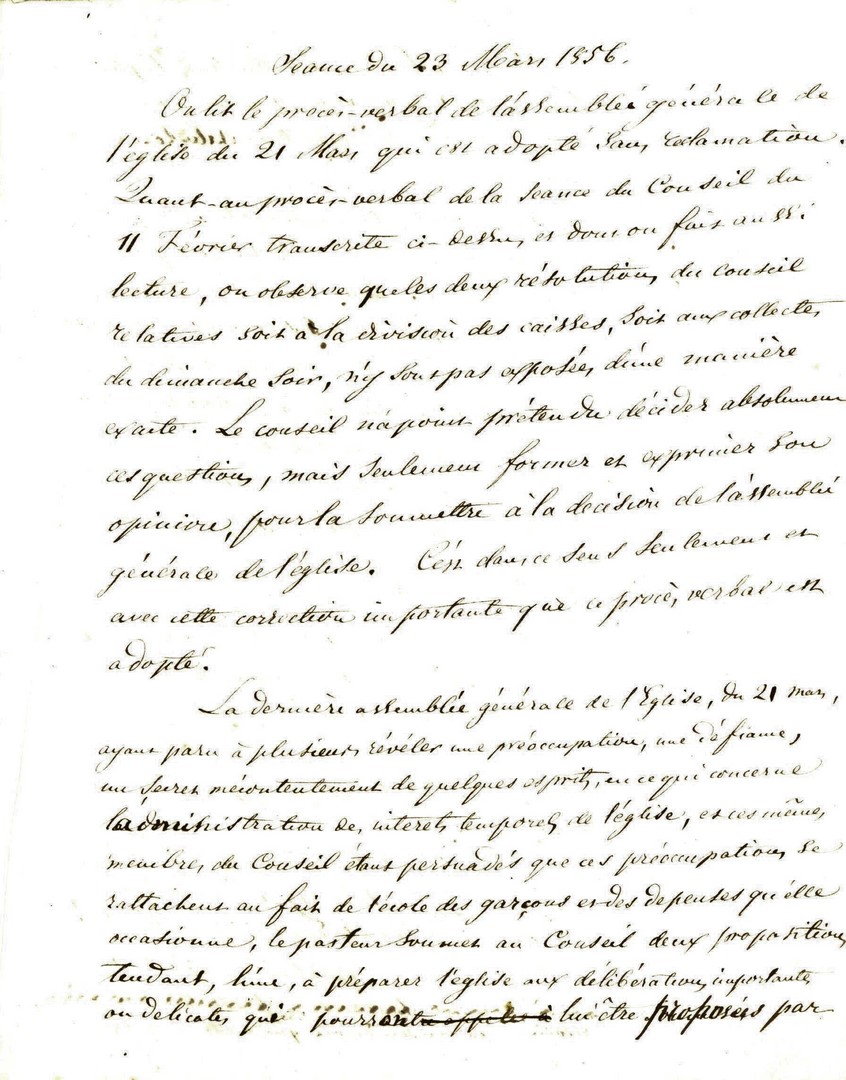 Séance du 23 Mars 1856.
On lit le procès-verbal de l'assemblée générale de
l'église du 21 Mars qui est adopté sans réclamation.
Quant-au procès-verbal de la séance du Conseil du
11 Février transcrite ci-dessus, et dont on fait aussi
lecture, on observe que les deux résolutions du conseil
relatives soit à la division des caisses, soit aux collectes
du dimanche soir, n'y sont pas exposées d'une manière
exacte. Le conseil n'a point prétendu décider absolument
ces questions, mais seulement former et exprimer son
opinion, pour la soumettre à la décision de l'assemblée
générale de l'église. C'est dans ce sens seulement et
avec cette correction importante que ce procès verbal est
adopté.
La dernière assemblée générale de l'Eglise, du 21 mars,
ayant paru à plusieurs révéler une préoccupation, une défiance,
un secret mécontentement de quelques esprits, en ce qui concerne
l'administration des interets temporels de l'église, et ces mêmes
membres du Conseil étant persuadés que ces préoccupations se
rattachent au fait de l'école des garçons et des depenses qu'elle
occasionne, le pasteur soumet au Conseil deux propositions
tendant, l'une, à préparer l'église aux délibérations importantes
ou délicates qui pourront lui être proposées par